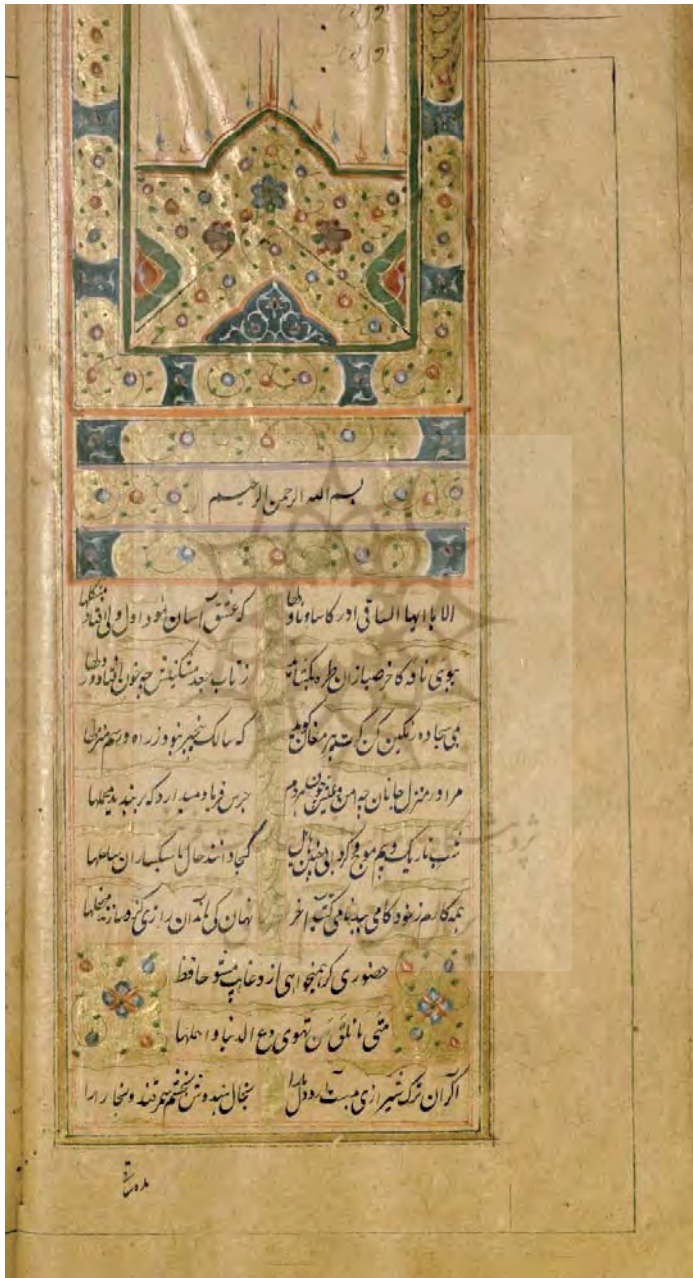 بسم الله الرحمن الرحیم
الا یا ایها الساقی ادر کاسا و ناولها که عشق آسان نمود اول ولی افتاد مشکلها
ببوی نافه کاخر صبا زان طره بکشاید ز تاب جعد مشکینش چه خون افتاد در دلها
بمی سجاده رنگین کن گرت پیر مغان گوید که سالک بیخبر نبود ز راه و رسم منزلها
مرا در منزل جانان چه امن و عیش چون هردم جرس فریاد میدارد که بربندید محملها
شب تاریک و بیم موج و گردابی چنین هایل کجا دانند حال ما سبکساران ساحلها
همه کارم ز خود کامی به بدنامی کشید آخر نهان کی ماند آن رازی کزو سازند محفلها
حضوری گر همیخواهی ازو غایب مشو حافظ
متی ما تلق من تهوی دع الدنیا و اهملها
اگر آن ترک شیرازی بدست آرد دل ما را بخال هندوش بخشم سمرقند و بخارا را